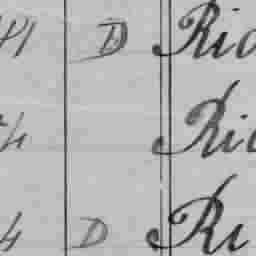 41 D Ric
4 Ric
4 D Ri